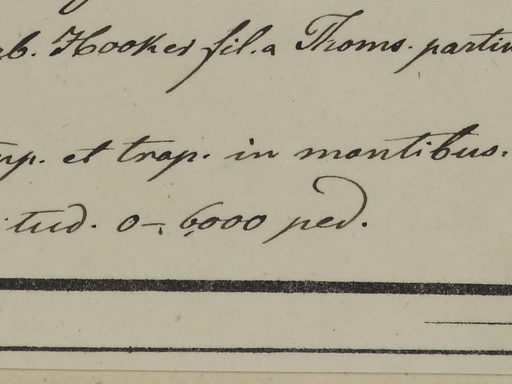 b. Hooker fil. a Thoms. partim
mp. et trop. in montibus.
tud. 0-6000 ped.